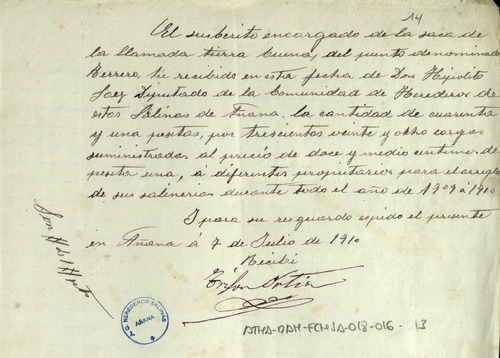 14
El suscrito encargado de la saca de
la llamada tierra buena, del punto denominado
Herrero, he recibido en esta fecha de Don Hipólito
Saez Diputado de la Comunidad de Herederos de
estas Salinas de Añana, la cantidad de cuarenta
y una pesetas, por trescientas veinte y ocho cargas
suministradas al precio de doce y medio centimos de
peseta una, á diferentes propietarios para el arreglo
de sus salinerias durante todo el año de 1909 á 1910
I para su resguardo espido el presente
en Añana á 7 de Julio de 1910
Recibi
Ortiz
Son
C. G. HEREDEROS SALINAS
AÑANA
ATHA-DAH-FCHSA-018-016-13